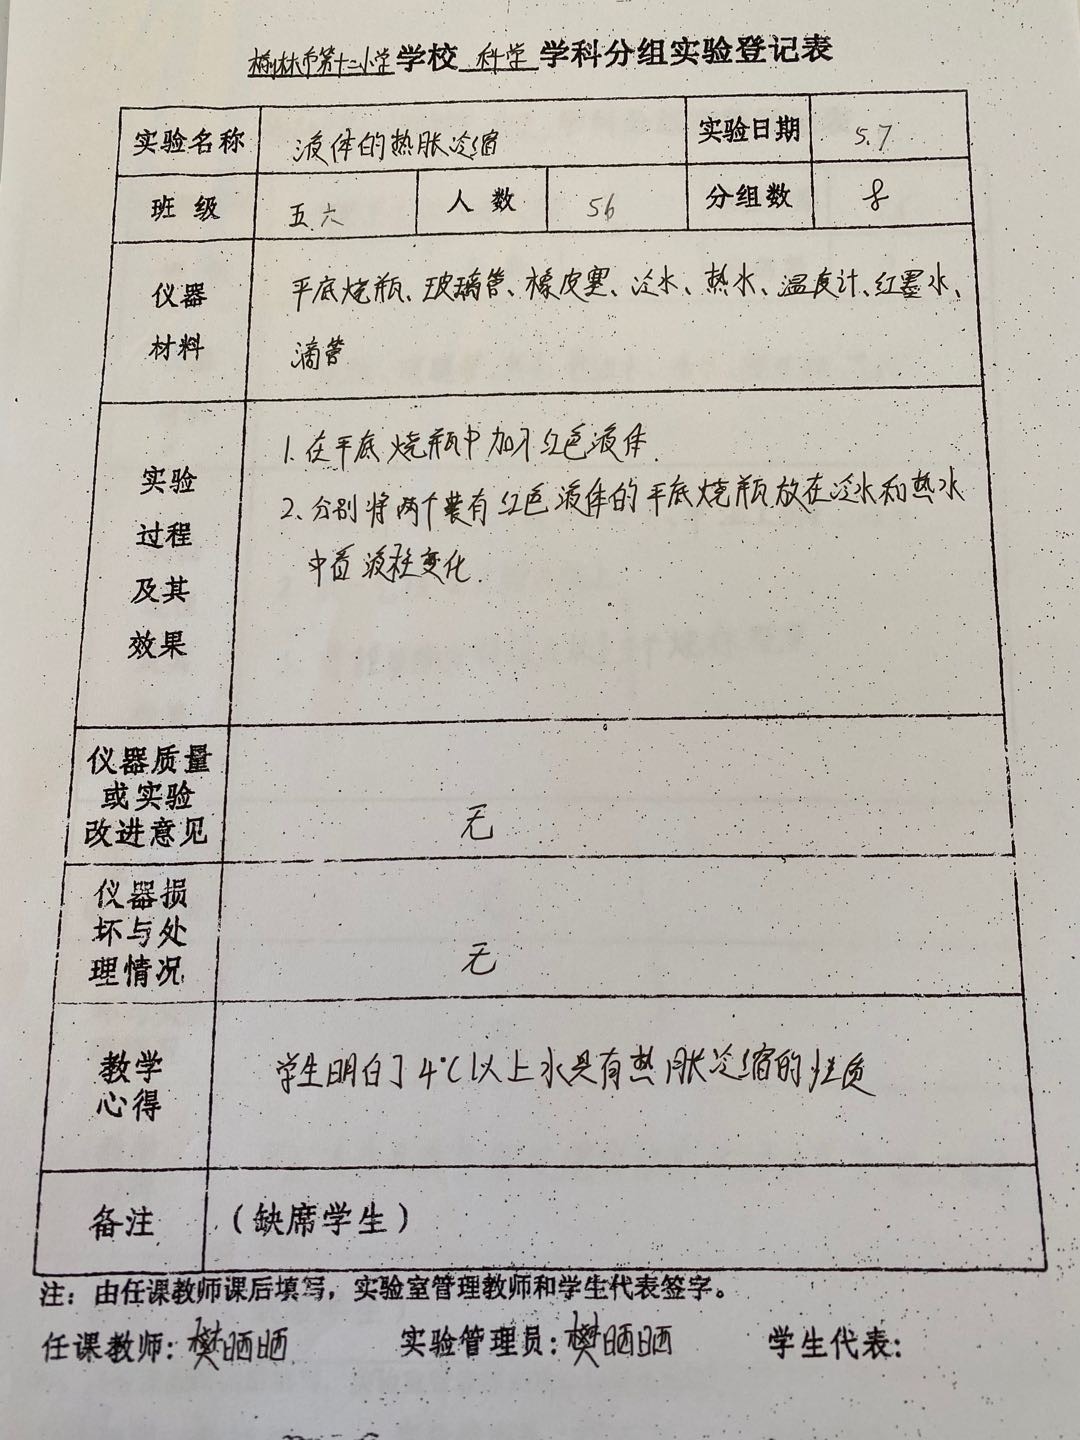 榆林市第十二小学学校 科学 学科分组实验登记表
实验名称 液体的热胀冷缩 实验日期 5.7
班级 五六 人数 56 分组数 8
仪器
材料
平底烧瓶、玻璃管、橡皮塞、冷水、热水、温度计、红墨水、
滴管
实验
过程
及其
效果
1. 在平底烧瓶中加入红色液体.
2. 分别将两个装有红色液体的平底烧瓶放在冷水和热水
中看液柱变化.
仪器质量
或实验
改进意见
无
仪器损
坏与处
理情况
无
教学
心得
学生明白了4℃以上水具有热胀冷缩的性质
备注 (缺席学生)
注：由任课教师课后填写，实验室管理教师和学生代表签字。
任课教师：樊晒晒 实验管理员：樊晒晒 学生代表：